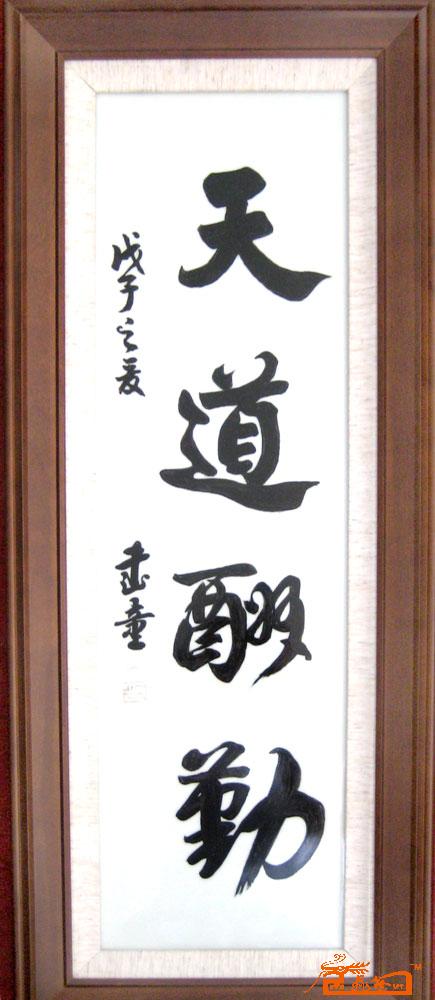 天道酬勤
戊子之夏